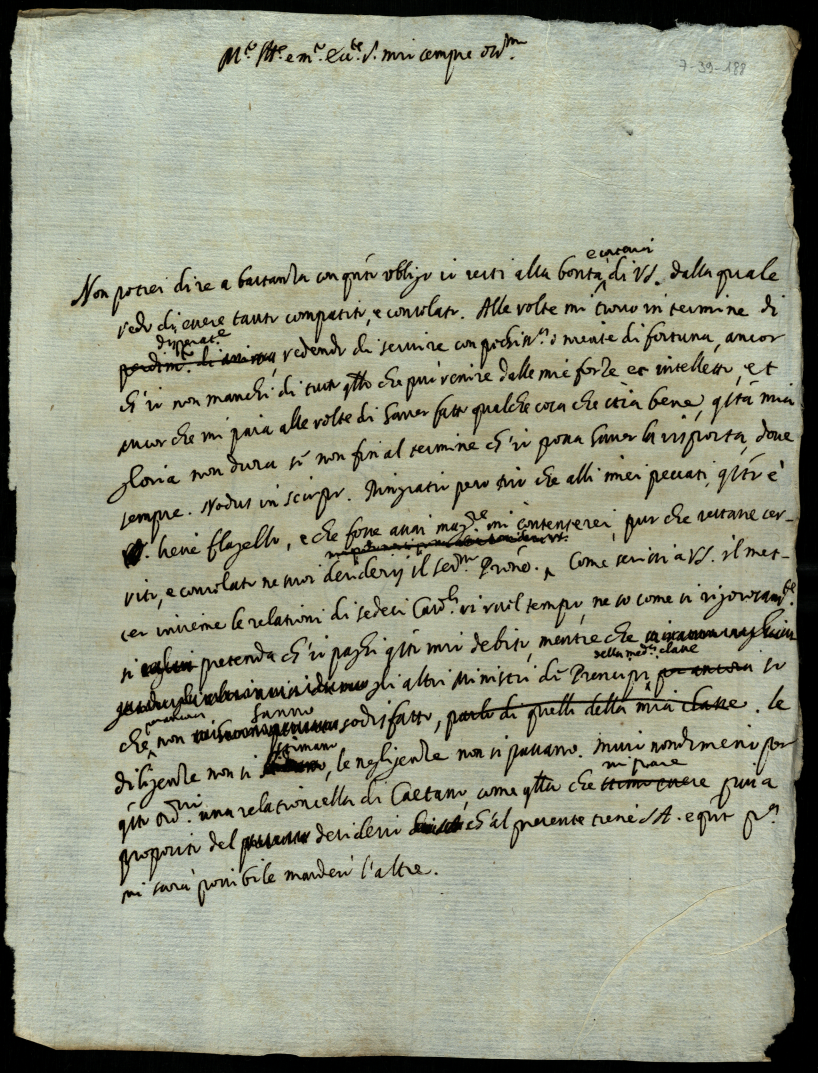 M.to Ill.re e m.to Ecc.te S. mio sempre oss.mo
7-39-188
e cortesia
Non potrei dire a bastanza con q.nto obligo io resti alla bontà di VS. dalla quale
vedo di essere tanto compatito, e consolato. Alle volte mi trovo in termine di
disperat.e
perdim.to di animo, vedendo di servire con pochiss.a o niente di fortuna, ancor
ch'io non manchi di tutto q.llo che può venire dalle mie forze et intelletto, et
ancor che mi paia alle volte di haver fatto qualche cosa che stia bene, q.sta mia
gloria non dura se non fin al termine ch'io possa haver la risposta, dove
sempre. Nodus in scirpo. Ringratio però Dio che alli miei peccati, q.sto è
lieve flagello, e che fosse assai mag.re mi contenterei, pur che restasse ser-
vito, e consolato ne suoi desiderij il Ser.mo Prone. Come scrissi a VS. il met-
ter insieme le relationi di sedeci Card.li vi vuol tempo, ne so come si rigorosam.te
si pretenda ch'io paghi q.sto mio debito, mentre che
della med.a classe
gli altri Ministri di Prencipi per ancora io
hanno
che non sodisfatto, parlo di quelli della mia classe. Le
stimano
diligenze non si, le negligenze non si passano. Invio nondimeno per
mi pare
q.sto ord.rio una relationcella di Caetano, come q.lla che stimo essere più a
proposito del desiderio ch'al presente tiene SA. e q.nto p.a
mi sarà possibile manderò l'altre.